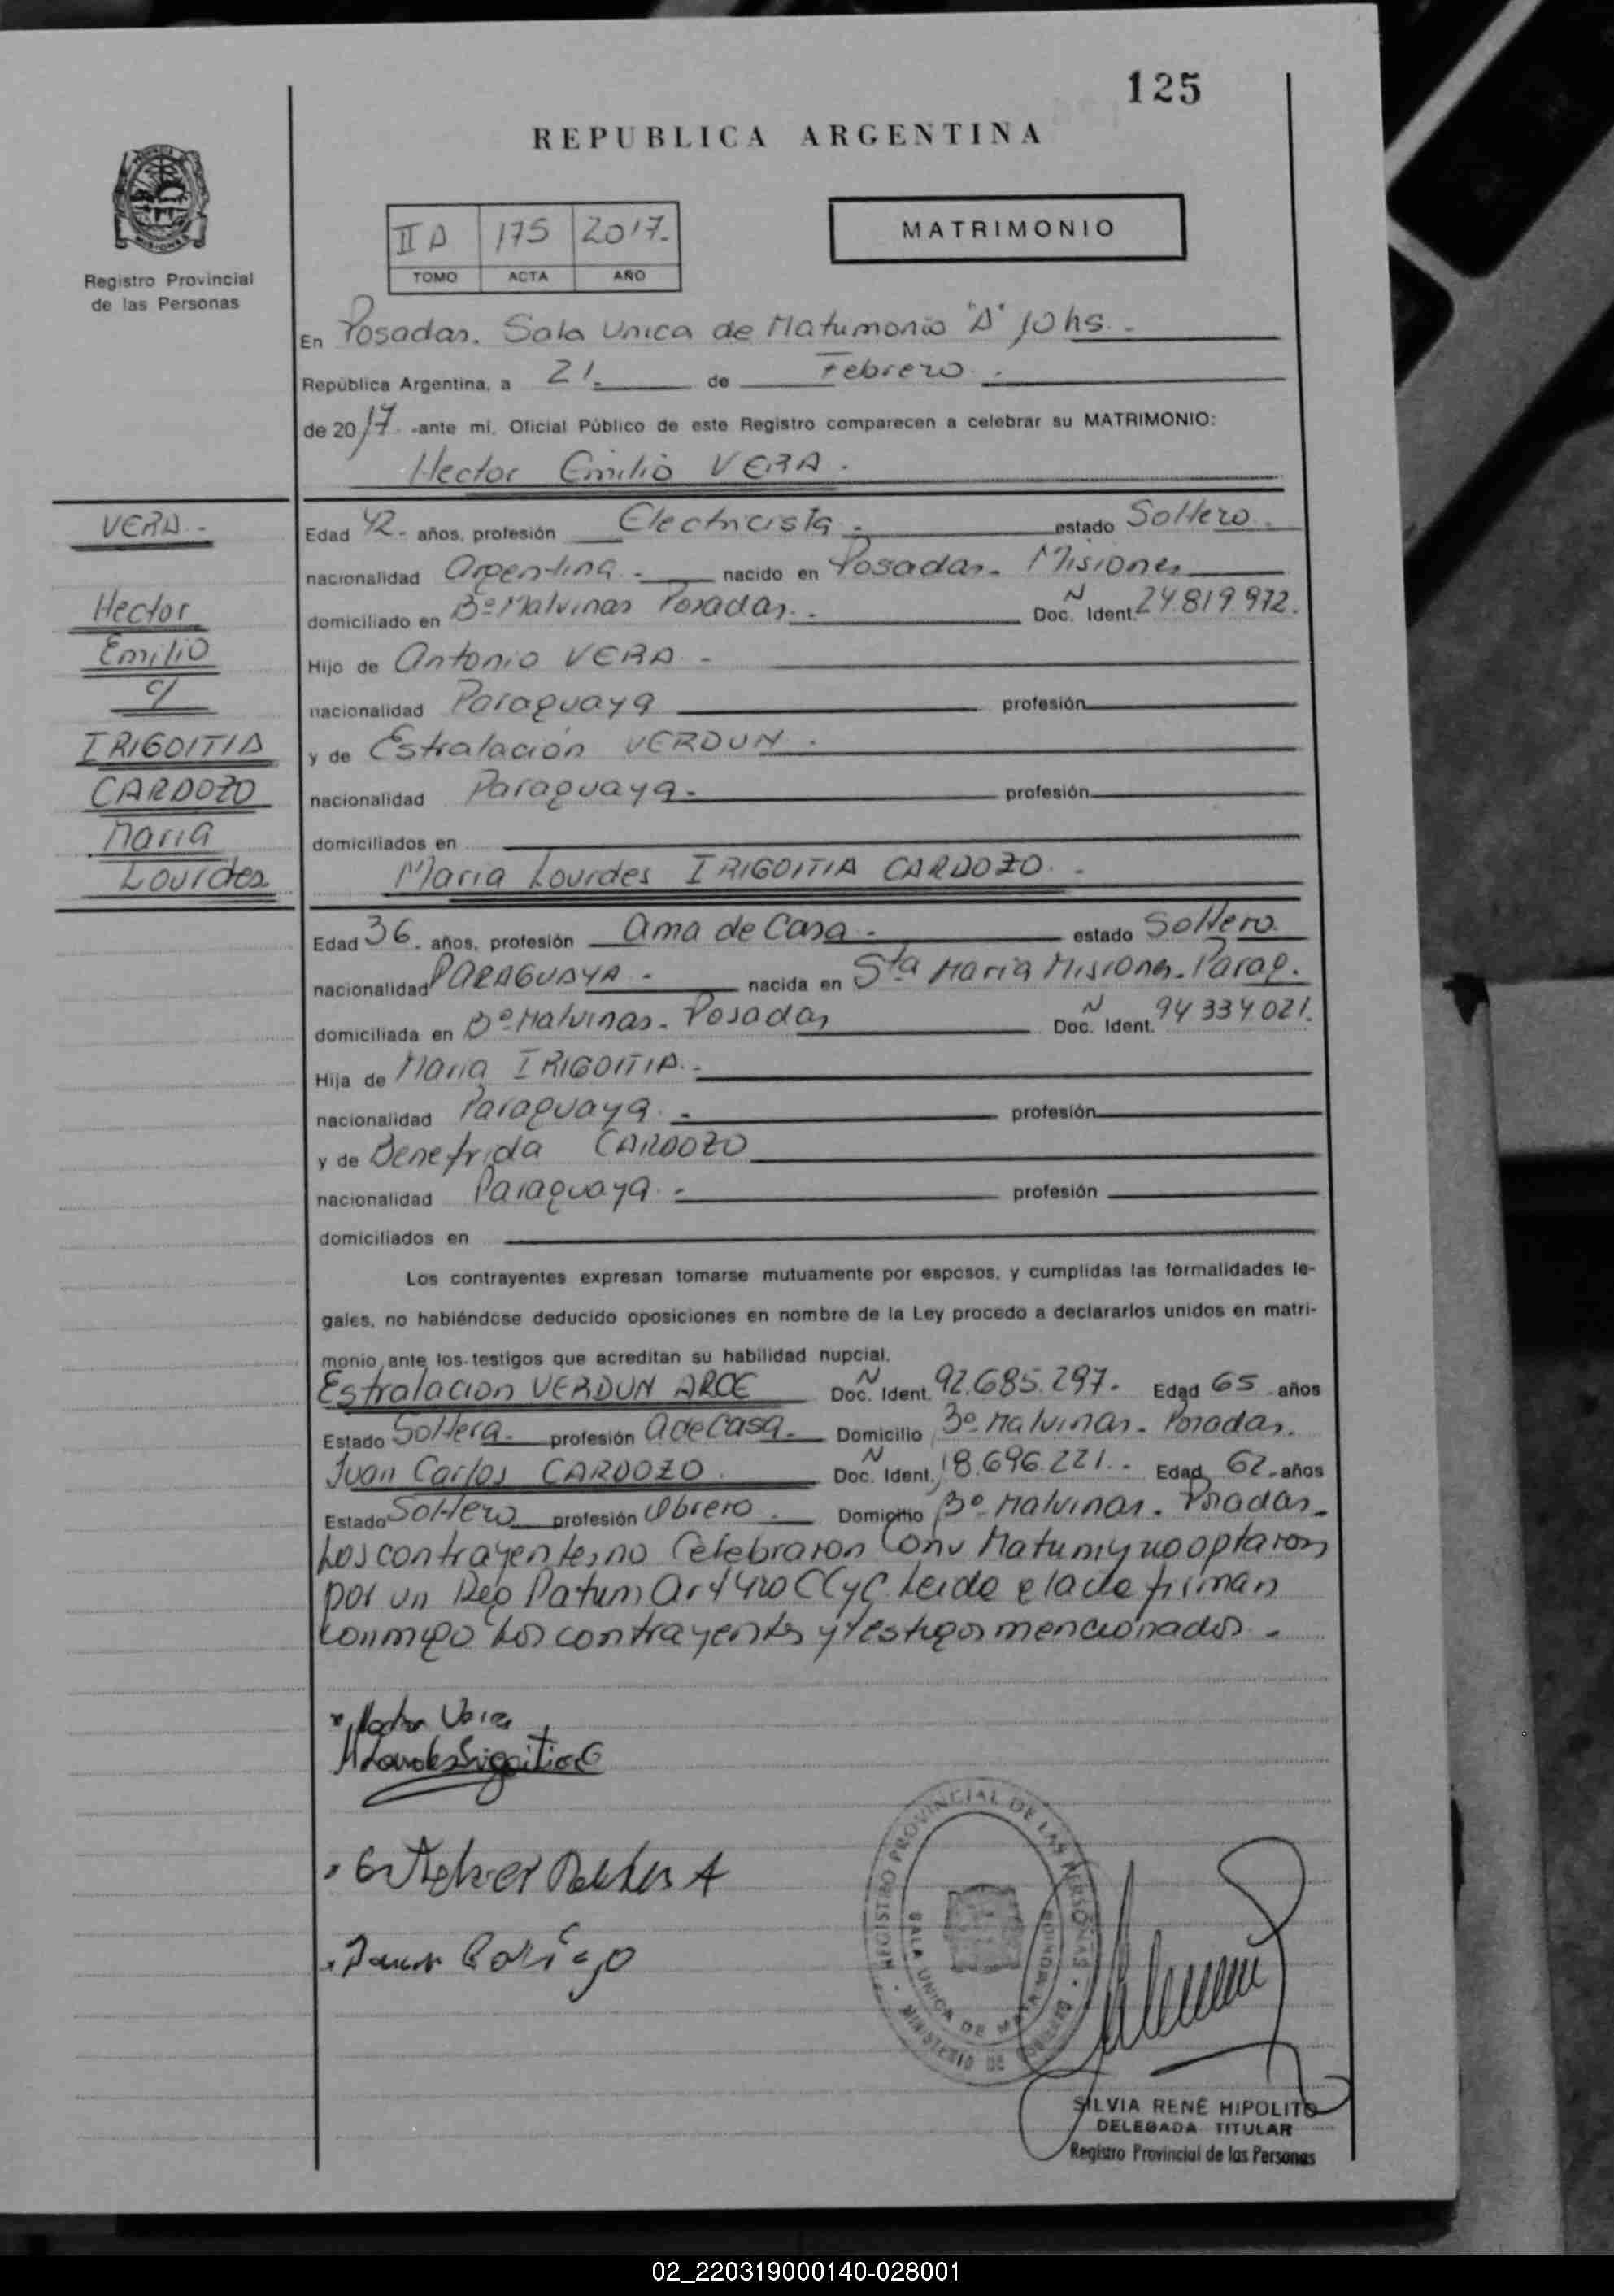 125
REPUBLICA ARGENTINA
Registro Provincial
de las Personas
II A 175 2017.-
TOMO ACTA AÑO
MATRIMONIO
En Posadas. Sala Unica de Matrimonio "A" 10 hs. -
República Argentina, a 21. de Febrero. -
de 2017. -ante mí, Oficial Público de este Registro comparecen a celebrar su MATRIMONIO:
Hector Emilio VERA. -
VERA -
Hector
Emilio
c/
IRIGOITIA
CARDOZO
Maria
Lourdes
Edad 42 - años, profesión Electricista. - estado Soltero.
nacionalidad Argentina. - nacido en Posadas. Misiones
domiciliado en Bº Malvinas Posadas. - Doc. Ident. N 24.819.972.
Hijo de Antonio VERA -
nacionalidad Paraguaya profesión
y de Estralación VERDUN. -
nacionalidad Paraguaya. - profesión
domiciliados en
Maria Lourdes IRIGOITIA CARDOZO. -
Edad 36. años, profesión ama de Casa. - estado Soltero.
nacionalidad PARAGUAYA - nacida en Sta Maria Misiones. Parag.
domiciliada en Bº Malvinas. Posadas Doc. Ident. N 94 334.021.
Hija de Maria IRIGOITIA. -
nacionalidad Paraguaya. - profesión
y de Benefrida CARDOZO
nacionalidad Paraguaya. - profesión
domiciliados en
Los contrayentes expresan tomarse mutuamente por esposos, y cumplidas las formalidades le-
gales, no habiéndose deducido oposiciones en nombre de la Ley procedo a declararlos unidos en matri-
monio ante los testigos que acreditan su habilidad nupcial.
Estralacion VERDUN ARCE Doc. Ident. N 92.685.297. Edad 65 años
Estado Soltera. profesión a de casa. Domicilio Bº Malvinas. Posadas.
Juan Carlos CARDOZO. Doc. Ident. N 18.696.221. - Edad 62. años
Estado Soltero profesión Obrero. Domicilio Bº Malvinas. Posadas.
Los contrayentes no Celebraron Conv Matrim y no optaron
por un Reg Patrim Art 420 CCyC. Leida el acta firman
conmigo los contrayentes y testigos mencionados. -
Hector Vera
M Lourdes Irigoitia C
REGISTRO PROVINCIAL DE LAS PERSONAS
SALA UNICA DE MATRIMONIO
MINISTERIO DE GOBIERNO
SILVIA RENÉ HIPOLITO
DELEGADA TITULAR
Registro Provincial de las Personas
02_220319000140-028001